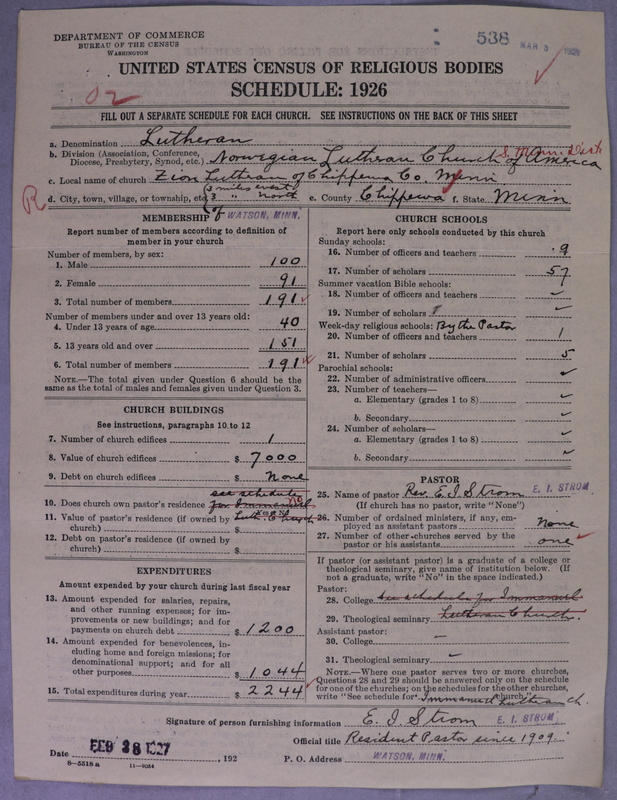 DEPARTMENT OF COMMERCE
BUREAU OF THE CENSUS
WASHINGTON
538 MAR 3 1928
UNITED STATES CENSUS OF RELIGIOUS BODIES
SCHEDULE: 1926
FILL OUT A SEPARATE SCHEDULE FOR EACH CHURCH. SEE INSTRUCTIONS ON THE BACK OF THIS SHEET
a. Denomination Lutheran
b. Division (Association, Conference, Diocese, Presbytery, Synod, etc.) Norwegian Lutheran Church of America
c. Local name of church Zion Lutheran of Chippewa Co. Minn
d. City, town, village, or township, etc. 3 miles west 3 " north of WATSON, MINN. e. County Chippewa f. State Minn
MEMBERSHIP
Report number of members according to definition of
member in your church
Number of members, by sex:
1. Male 100
2. Female 91
3. Total number of members 191
Number of members under and over 13 years old:
4. Under 13 years of age 40
5. 13 years old and over 151
6. Total number of members 191
NOTE.—The total given under Question 6 should be
same as the total of males and females given under Question 3.
CHURCH BUILDINGS
See instructions, paragraphs 10 to 12
7. Number of church edifices 1
8. Value of church edifices $ 7000
9. Debt on church edifices $ None
see schedule
10. Does church own pastor's residence for Immanuel no
11. Value of pastor's residence (if owned by church) Luth. Church $
12. Debt on pastor's residence (if owned by church) $
EXPENDITURES
Amount expended by your church during last fiscal year
13. Amount expended for salaries, repairs,
and other running expenses; for im-
provements or new buildings; and for
payments on church debt $ 1200
14. Amount expended for benevolences, in-
cluding home and foreign missions; for
denominational support; and for all
other purposes $ 1044
15. Total expenditures during year $ 2244
CHURCH SCHOOLS
Report here only schools conducted by this church
Sunday schools:
16. Number of officers and teachers 9
17. Number of scholars 57
Summer vacation Bible schools:
18. Number of officers and teachers ✓
19. Number of scholars ✓
Week-day religious schools: By the Pastor
20. Number of officers and teachers 1
21. Number of scholars 5
Parochial schools:
22. Number of administrative officers ✓
23. Number of teachers—
a. Elementary (grades 1 to 8) ✓
b. Secondary ✓
24. Number of scholars—
a. Elementary (grades 1 to 8) ✓
b. Secondary ✓
PASTOR
25. Name of pastor Rev. E. I Strom E. I. STROM
(If church has no pastor, write "None")
26. Number of ordained ministers, if any, em-
ployed as assistant pastors None
27. Number of other churches served by the
pastor or his assistants one
If pastor (or assistant pastor) is a graduate of a college or
theological seminary, give name of institution below. (If
not a graduate, write "No" in the space indicated.)
Pastor:
28. College see schedule for Immanuel
29. Theological seminary Lutheran Church.
Assistant pastor:
30. College —
31. Theological seminary ✓
NOTE.—Where one pastor serves two or more churches,
Questions 28 and 29 should be answered only on the schedule
for one of the churches; on the schedules for the other churches,
write "See schedule for Immanuel Lutheran Ch. church."
Signature of person furnishing information E. I Strom E. I. STROM
Official title Resident Pastor since 1909.
Date FEB 28 1927, 192 P. O. Address WATSON, MINN.
8—5518 a 11—9034